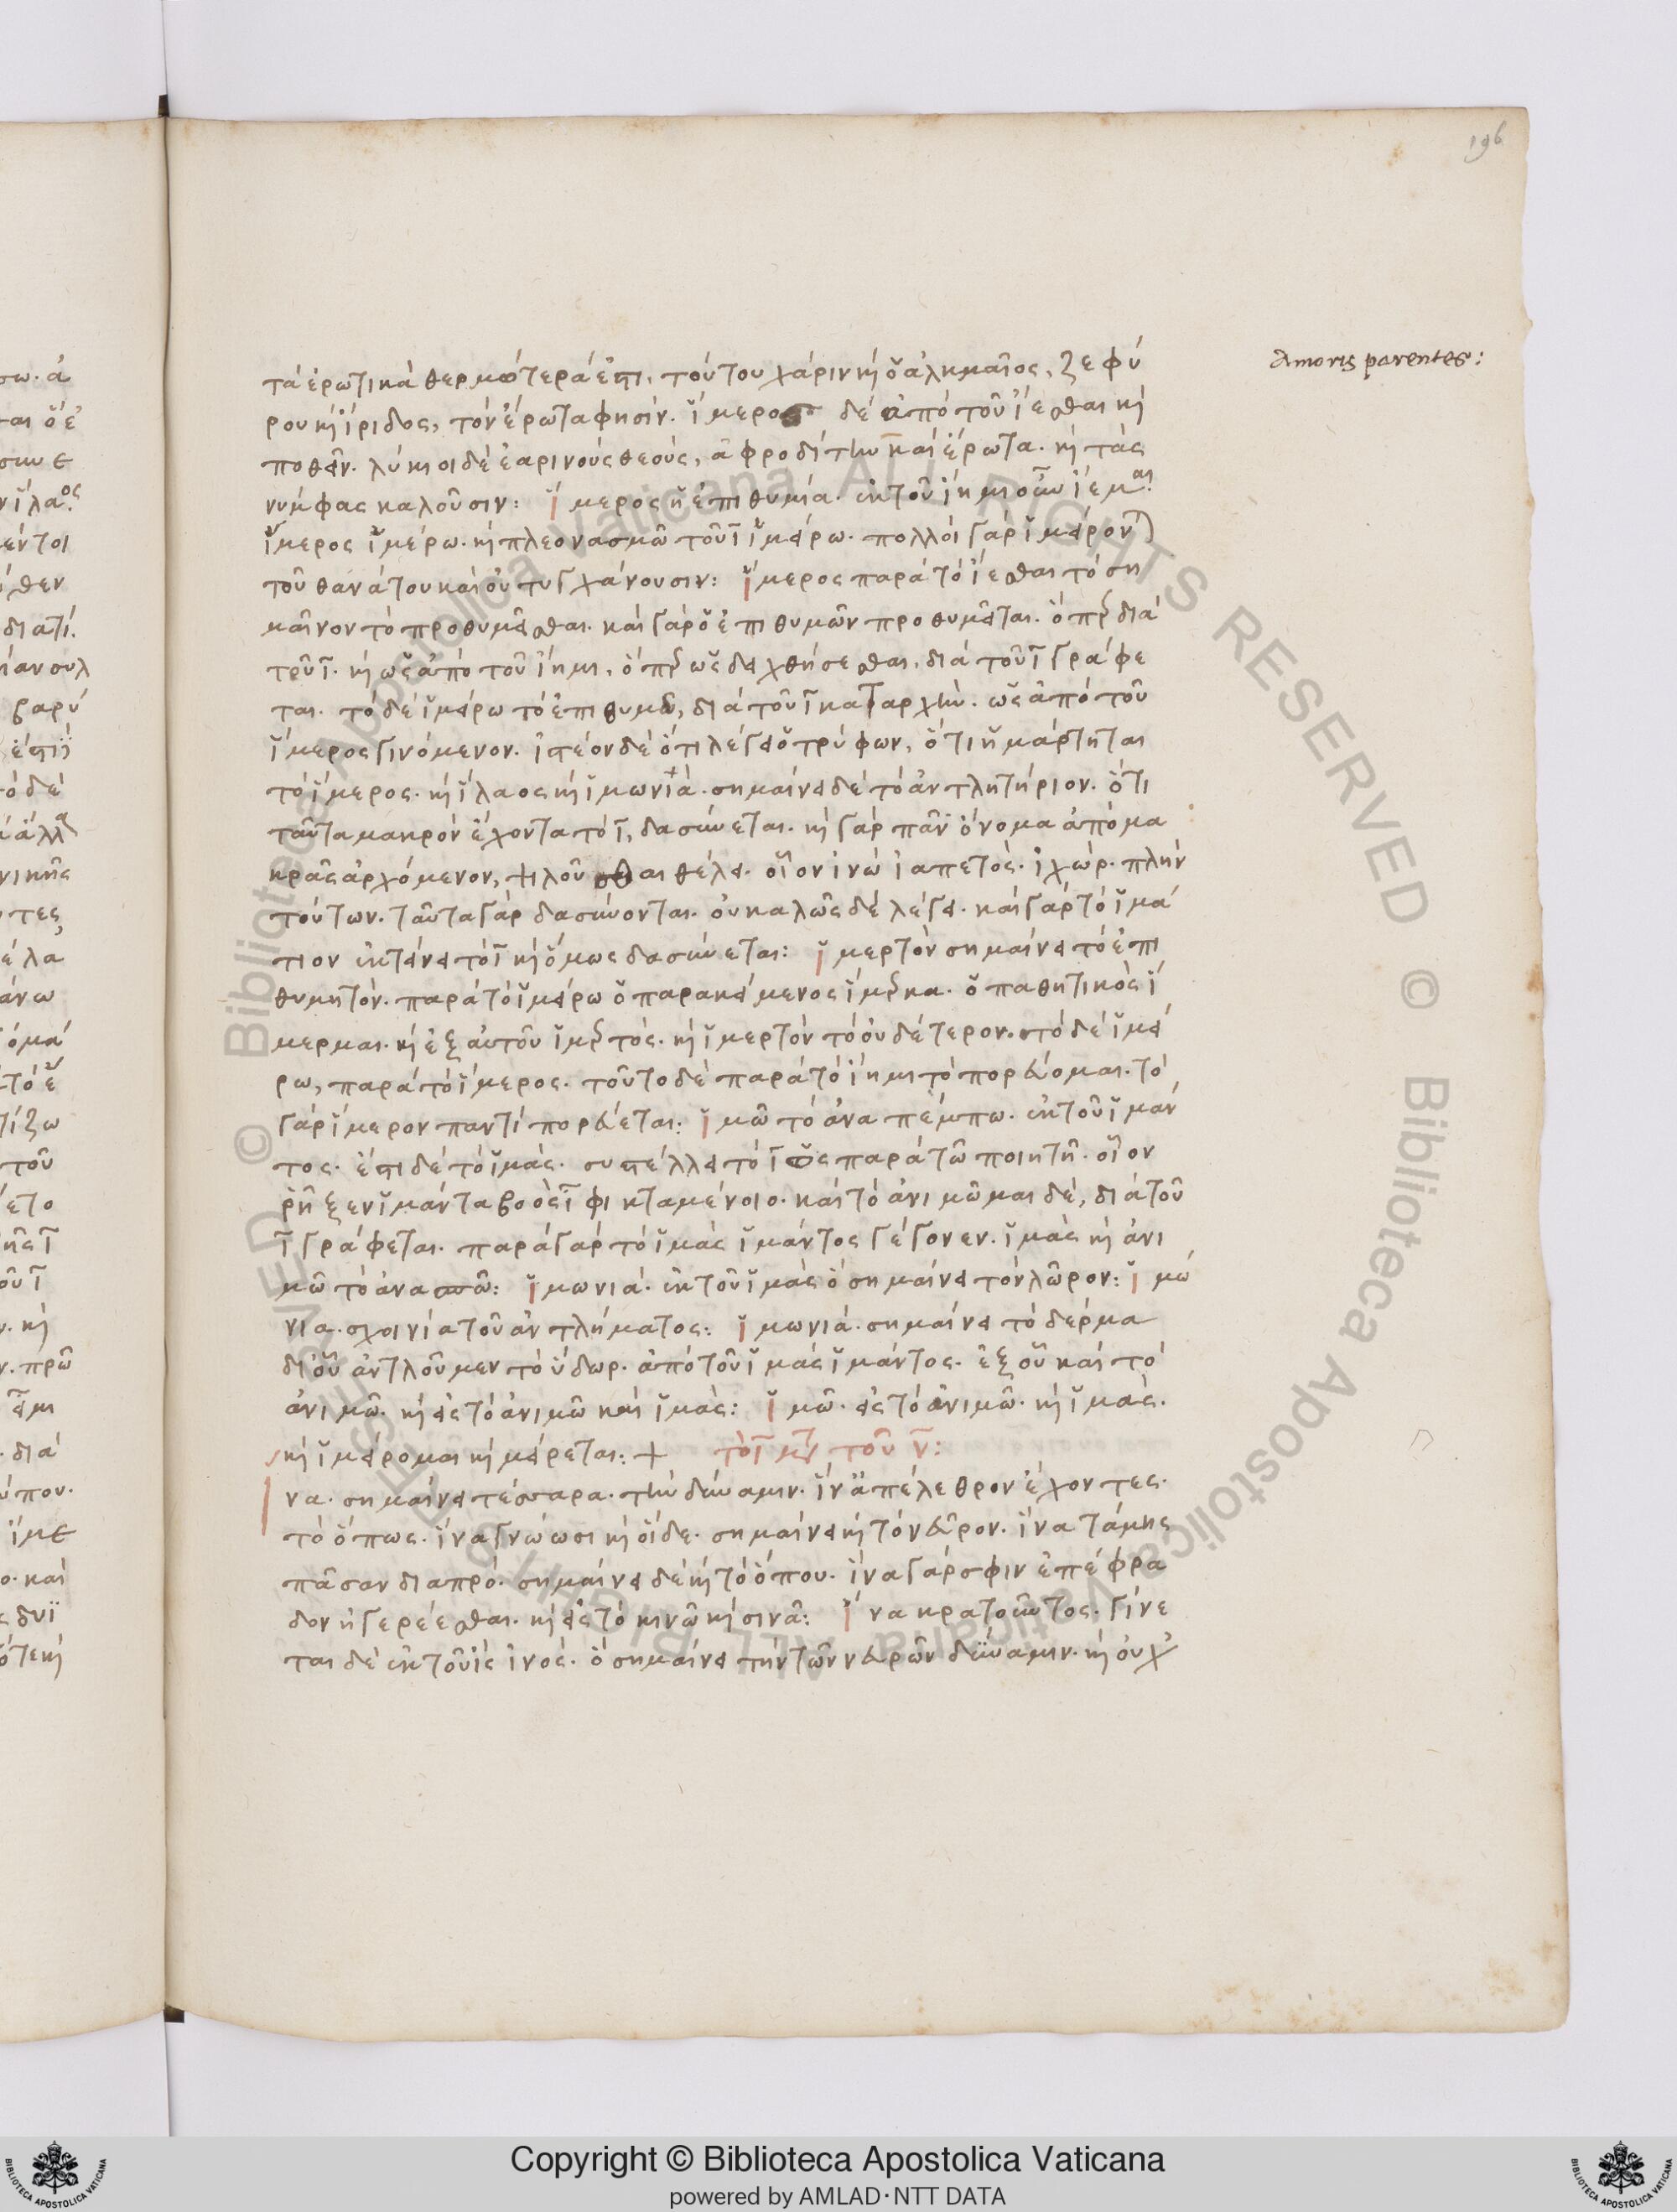 196
Amoris parentes:
τὰ ἐρωτικὰ θερμότερά ἐστι. τούτου χάριν καὶ ὁ ἀλκμαῖος, ζεφύ
ρου καὶ ἴριδος, τὸν ἔρωτα φησίν. ἵμερος δὲ ἀπὸ τοῦ ἵεσθαι καὶ
ποθεῖν. λύκιοι δὲ ἐαρινοὺς θεοὺς, ἀφροδίτην καὶ ἔρωτα. καὶ τὰς
νύμφας καλοῦσιν: ἵμερος ἡ ἐπιθυμία. ἐκ τοῦ ἵημι οὗ ἵεμαι
ἵμερος ἱμέρω. καὶ πλεονασμῶ τοῦ ι ἱμείρω. πολλοὶ γὰρ ἱμείρον
τοῦ θανάτου καὶ οὐ τυγχάνουσιν: ἵμερος παρὰ τὸ ἵεσθαι τὸ ση
μαῖνον τὸ προθυμεῖσθαι. καὶ γὰρ ὁ ἐπιθυμῶν προθυμεῖται. ὅπερ διὰ
τοῦ ι. καὶ ὡς ἀπὸ τοῦ ἵημι, ὅπερ ὡς δειχθήσεθαι, διὰ τοῦ ι γράφε
ται. τὸ δὲ ἱμείρω τὸ ἐπιθυμῶ, διὰ τοῦ ι καταρχήν. ὡς ἀπὸ τοῦ
ἵμερος γινόμενον. ἰστέον δὲ ὅτι λέγει ὁ τρύφων, ὅτι ἡμάρτηται
τὸ ἵμερος. καὶ ἵλαος καὶ ἱμωνιὰ. σημαίνει δὲ τὸ ἀντλητήριον. ὅτι
ταῦτα μακρὸν ἔχοντα τὸ ι, δασύνεται. καὶ γὰρ πᾶν ὄνομα ἀπὸ μα
κρᾶς ἀρχόμενον, ψιλοῦσθαι θέλει. οἷον ἰνώ ἰαπετός. ἰχώρ. πλὴν
τούτων. ταῦτα γὰρ δασύνονται. οὐ καλῶς δὲ λέγει. καὶ γὰρ τὸ ἱμά
τιον ἐκτείνει τὸ ι καὶ ὅμως δασύνεται: ἱμερτὸν σημαίνει τὸ ἐπι
θυμητόν. παρὰ τὸ ἱμείρω ὁ παρακείμενος ἵμερκα. ὁ παθητικὸς ἵ
μερμαι. καὶ ἐξ αὐτοῦ ἱμερτός. καὶ ἱμερτὸν τὸ οὐδέτερον. τὸ δὲ ἱμεί
ρω, παρὰ τὸ ἵμερος. τοῦτο δὲ παρὰ τὸ ἵημι τὸ πορεύομαι. τὸ
γὰρ ἵμερον παντὶ πορεύεται: ἱμῶ τὸ ἀναπέμπω. ἐκ τοῦ ἱμάν
τος. ἔστι δὲ τὸ ἱμάς. συστέλλει τὸ ι ὡς παρὰ τῶ ποιητῆ. οἷον
ῥῆξεν ἱμάντα βοὸς ἶφι κταμένοιο. καὶ τὸ ἀνιμῶμαι δὲ, διὰ τοῦ
ι γράφεται. παρὰ γὰρ τὸ ἱμὰς ἱμάντος γέγονεν. ἱμὰς καὶ ἀνι
μῶ τὸ ἀνασπῶ: ἱμωνιά. ἐκ τοῦ ἱμὰς ὃ σημαίνει τὸν λῶρον: ἱμώ
νια. σχοινία τοῦ ἀντλήματος: ἱμωνιά. σημαίνει τὸ δέρμα
δι οὗ ἀντλοῦμεν τὸ ὕδωρ. ἀπὸ τοῦ ἱμὰς ἱμάντος. ἐξ οὗ καὶ τὸ
ἀνιμῶ. καὶ εἰς τὸ ἀνιμῶ καὶ ἱμάς: ἱμῶ. εἰς τὸ ἀνιμῶ. καὶ ἱμάς.
καὶ ἱμείρομαι καὶ μείρεται: + τὸ ι μετὰ τοῦ ν:
ἵνα. σημαίνει τέσσαρα. τὴν δύναμιν. ἶν ἀπέλεθρον ἔχοντες.
τὸ ὅπως. ἵνα γνώωσι καὶ οἵδε. σημαίνει καὶ τὸν εῦρον. ἵνα τάμης
πᾶσαν διαπρό. σημαίνει δὲ καὶ τὸ ὅπου. ἵνα γάρ σφιν ἐπέφρα
δον ἠγερέεσθαι. καὶ εἰς τὸ κινῶ καὶ σινᾶ: ἵνα κρατοῦντος. γίνε
ται δὲ ἐκ τοῦ ἲς ἰνός. ὃ σημαίνει τὴν τῶν νεύρων δύναμιν. καὶ οὐχ
Copyright © Biblioteca Apostolica Vaticana
powered by AMLAD·NTT DATA